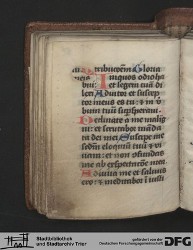 tribucem Gloria
Iniquos odio ha
bui: et legem tuā di
lexi Adiutor et suscep
tor meus es tu: et in v̄
bum tuū supsperaui
Declinate a me malig
ni: et scrutabor mādā
ta dei mei Suscipe me
scdm eloquiū tuū et vi
uam: et non cōfundas me
ab expectatione mea
Adiuua me et saluus
ero: et meditabor ī iusti
Stadtbibliothek
und Stadtarchiv Trier
gefördert von der
Deutschen Forschungsgemeinschaft
DFG